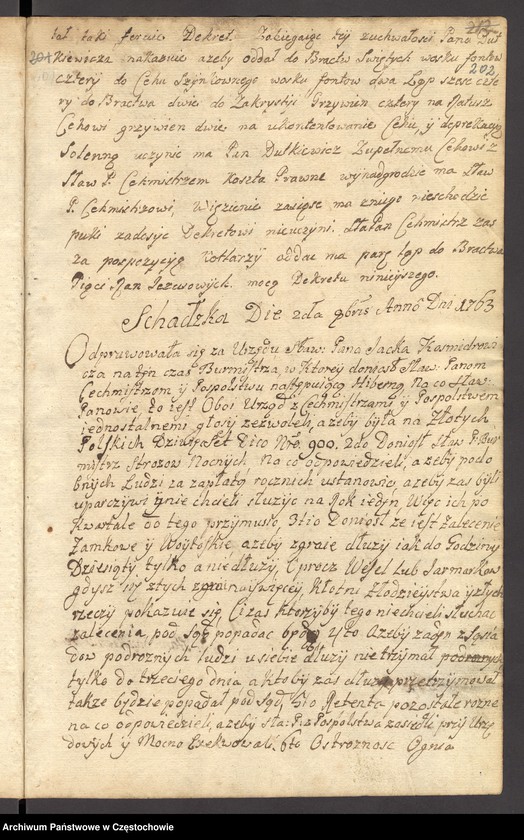 tał taki ferwie Dekret Zabiegaiąc tej zuchwałosci Pana Dut
kiewicza nakazuie azeby oddał do Bractw Swiętych wosku fontow
202
cztery do Cechu Szynkownego wosku fontow dwa Łgp szesc czte
ry do Bractwa dwie do Zakrystyi Grzywien cztery na Ratusz
Cechowi grzywien dwie na ukontentowanie Cechu, y deprekacyą
Solenną uczynic ma Pan Dutkiewicz Zupełnemu Cechowi z
Sław P. Cechmistrzem koszta Prawne wynadgrodzic ma Sław
P. Cechmistrzowi, Więzienie zasięsc ma z niego nieschodzic
puki zadosyc Dekretowi nieuczyni. Pan Cechmistrz zas
za propozycyą oddac ma parę łgp do Bractwa
Pięci Ran Jezusowych. mocą Dekretu ninieyszego.
Schadzka Die 2da 9bris Anno Dni 1763
Odprawowała się za Urzędu Sław: Pana Jacka Kazmidrowi
cza na ten czas Burmistrza, w ktorey doniosł Sław: Panom
Cechmistrzom y Pospolstwu następuiącą Hiberną Na co Sław:
Panowie to iest Oboi Urząd z Cechmistrzami y Pospolstwem
iednostalnemi głosy zezwoleli, azeby była na Złotych
Polskich Dziewięset Dico Nro. 900. 2do Doniosł Sław P. Bur
mistrz Strozow Nocnych, Na co odpowiedzieli, azeby podo
bnych Ludzi za zapłatą rocznich ustanowic, azeby zas byli
uparczywi y niechcieli słuzyc na Rok ieden, Więc ich po
kwartale do tego przymusic, 3tio Doniosł ze iest Zalecenie
Zamkowe y Woytoskie, azeby zgraie dłuzy iak do Godziny
Dziesiąty tylko a niedłuzy, Oprocz Wesel lub Jarmarkow
gdysz się z tych naiwięcey, Kłotni Złodzieystwa y złych
rzeczy pokazuie się, Ci zas ktorzyby tego niechcieli słuchac
zalecenia, pod Sąd popadac będą 4to Azeby zaden z Sosia
dow podroznych ludzi u siebie dłuzy nietrzymał
tylko do trzeciego dnia a ktoby zas dłuzy przetrzymował
takze będzie popadał pod Sąd, 5to Retenta pozostałe rozne
na co odpowiedzieli, azeby Sła: P. z Pospolstwa zasiedli przy Urzę
dowych y Mocno Exekwowali. 6to Ostroznosc Ognia
Archiwum Państwowe w Częstochowie